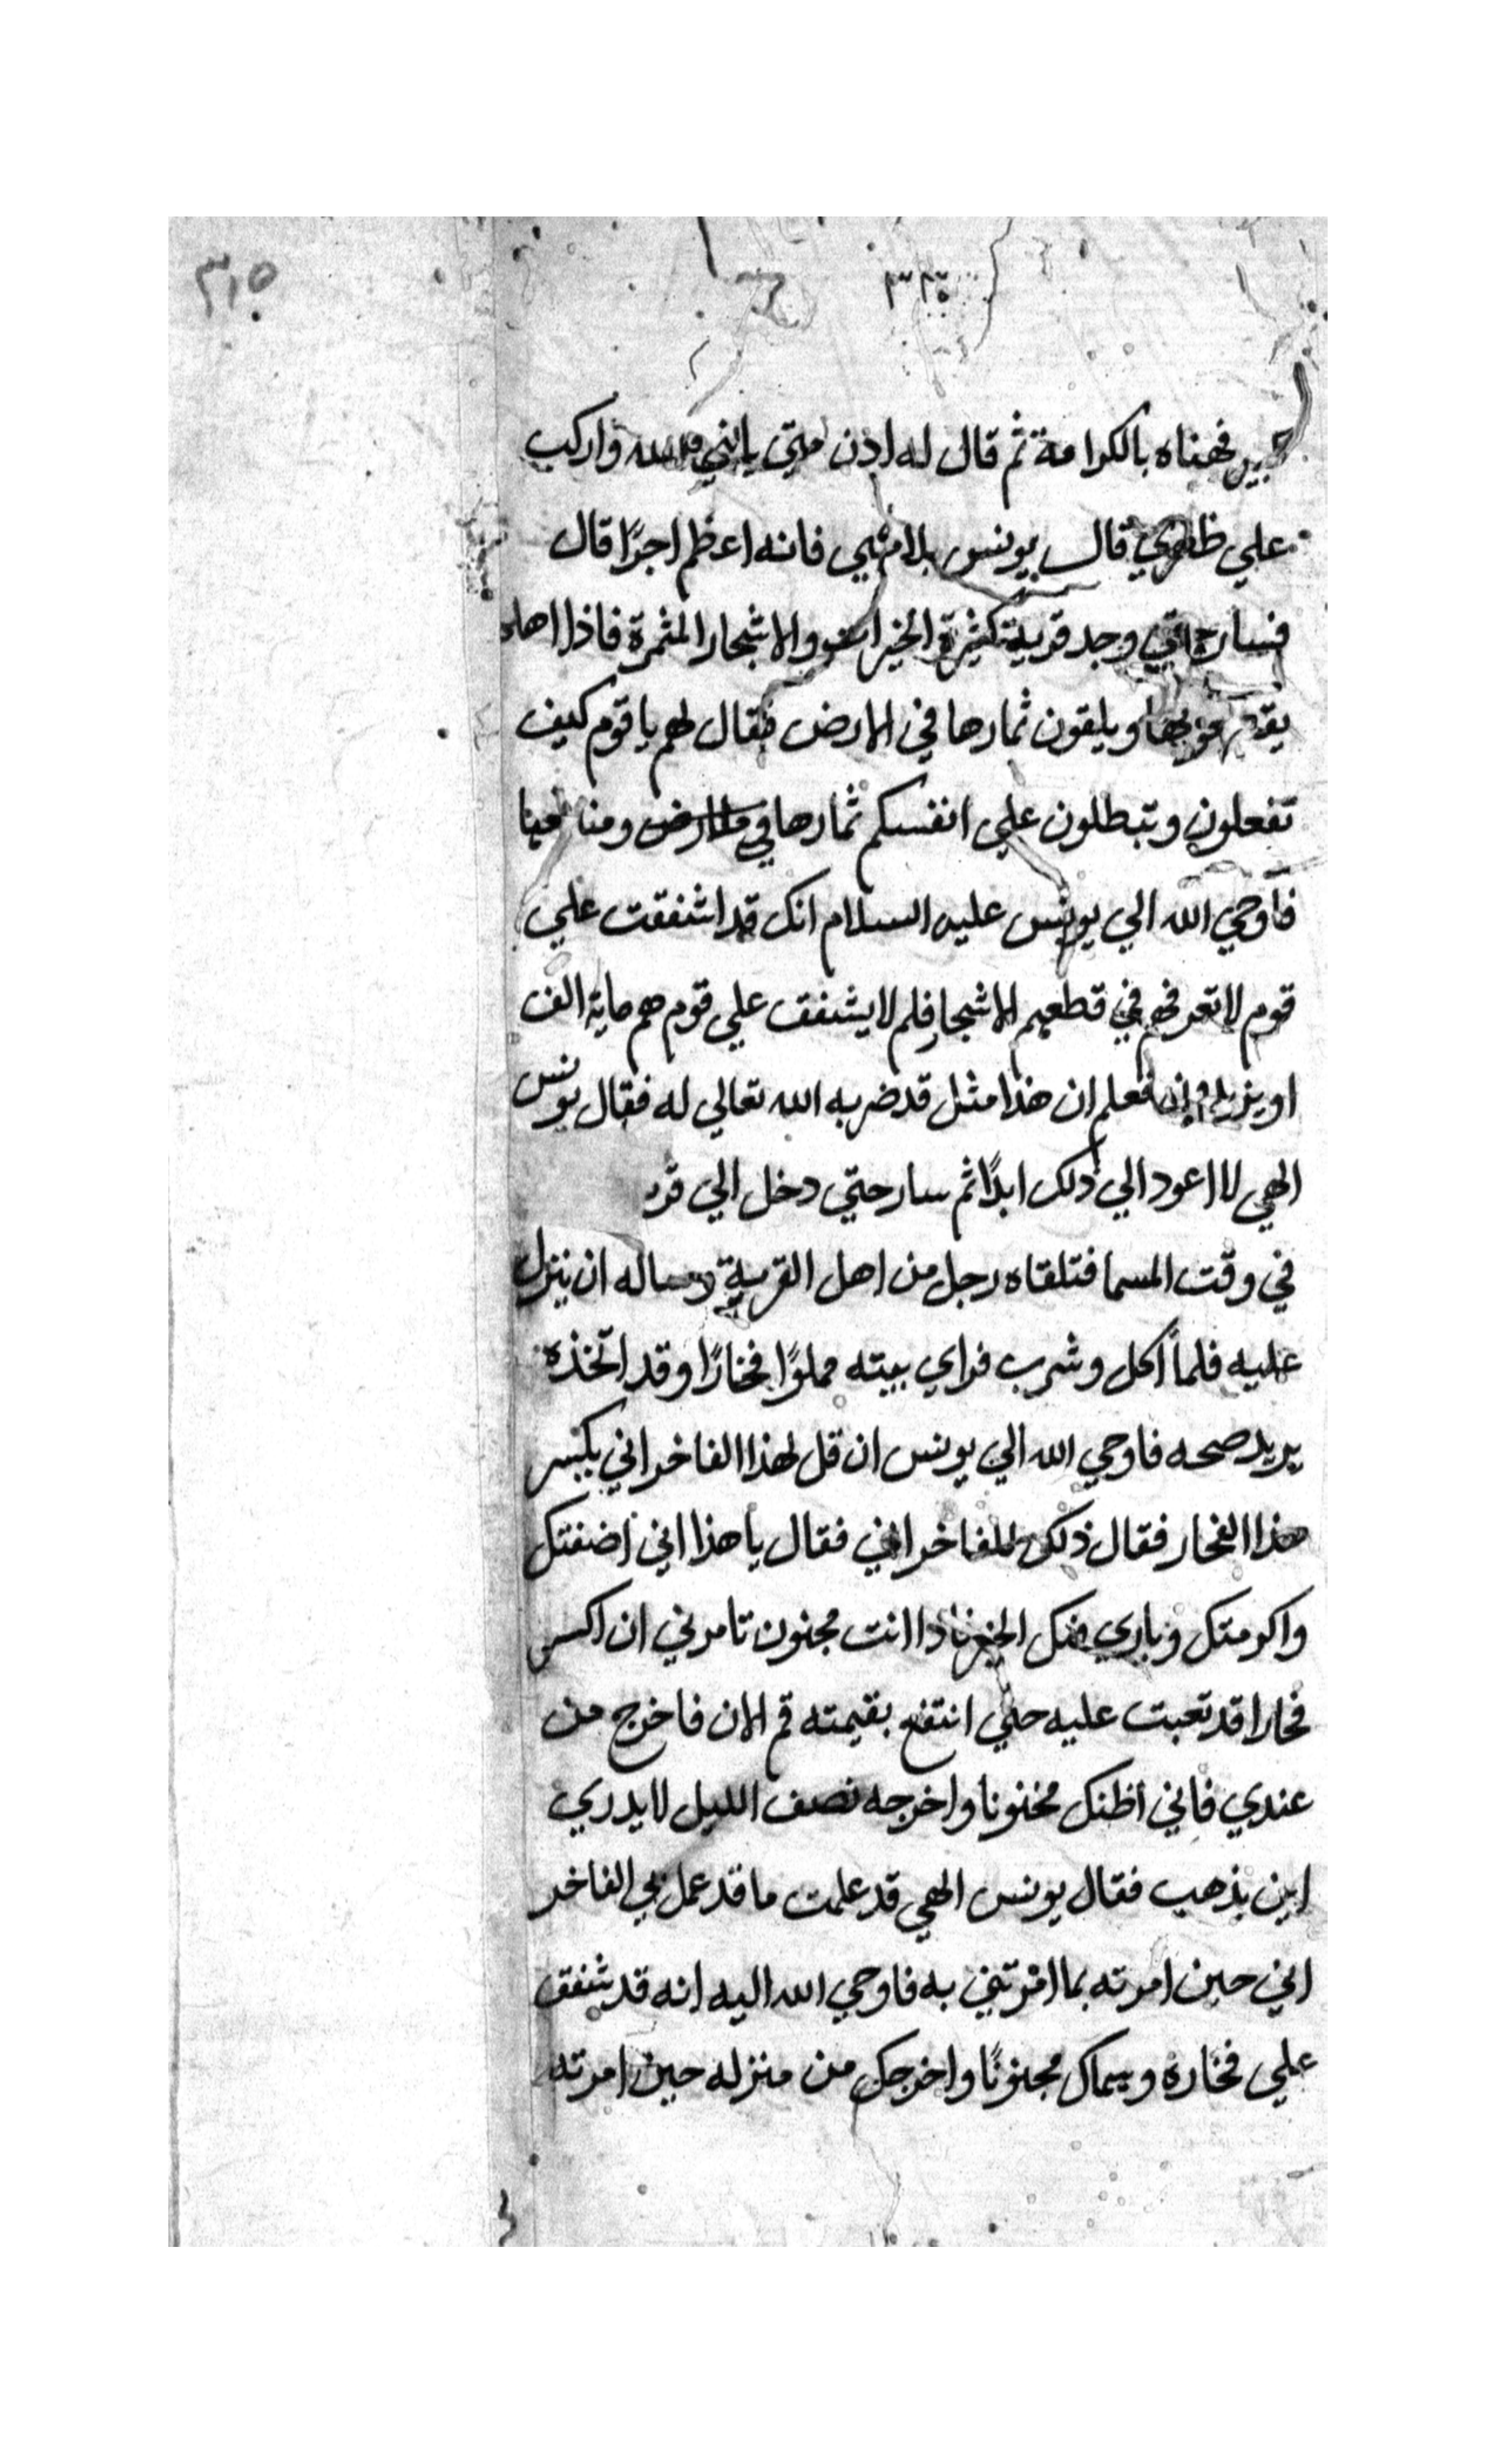 ٣١٥
فهناه بالكرامة ثم قال له ادن مني يانبي الله واركب
علي ظهري قال يونس بلامشي فانه اعظم اجرًا قال
فسار حتي وجد قرية كثيرة الخيرات والاشجار المثمرة فاذا اهلها
ويلقون ثمارها في الارض فقال لهم يا قوم كيف
تفعلون وتبطلون علي انفسكم ثمارها في الارض ومنافعها
فأوحي الله الي يونس عليه السلام انك قد اشفقت علي
قوم لا تعرفهم في قطعهم الاشجار فلم لا يشفق علي قوم هم ماية الف
او يزيدون فعلم ان هذا مثل قد ضربه الله تعالي له فقال يونس
الهي لا اعود الي ذلك ابدًا ثم سار حتي دخل الي قر
في وقت المسا فتلقاه رجل من اهل القرية وساله ان ينزل
عليه فلما اكل وشرب فراي بيته مملوًا فخارًا وقد اتخذه
يريد صحه فاوحي الله الي يونس ان قل لهذا الفاخراني يكسر
هذا الفخار فقال ذلك للفاخراني فقال يا هذا اني اضفتك
واكرمتك انت مجنون تامرني ان اكسر
فخارا قد تعبت عليه حتي انتفع بقيمته قم الان فاخرج من
عندي فاني اظنك مخنونا واخرجه نصف الليل لا يدري
اين يذهب فقال يونس الهي قد علمت ما قد عمل بي الفاخر
اني حين امرته بما امرتني به فاوحي الله اليه انه قد شفق
علي فخاره وسماك مجنونًا واخرجك من منزله حين امرته